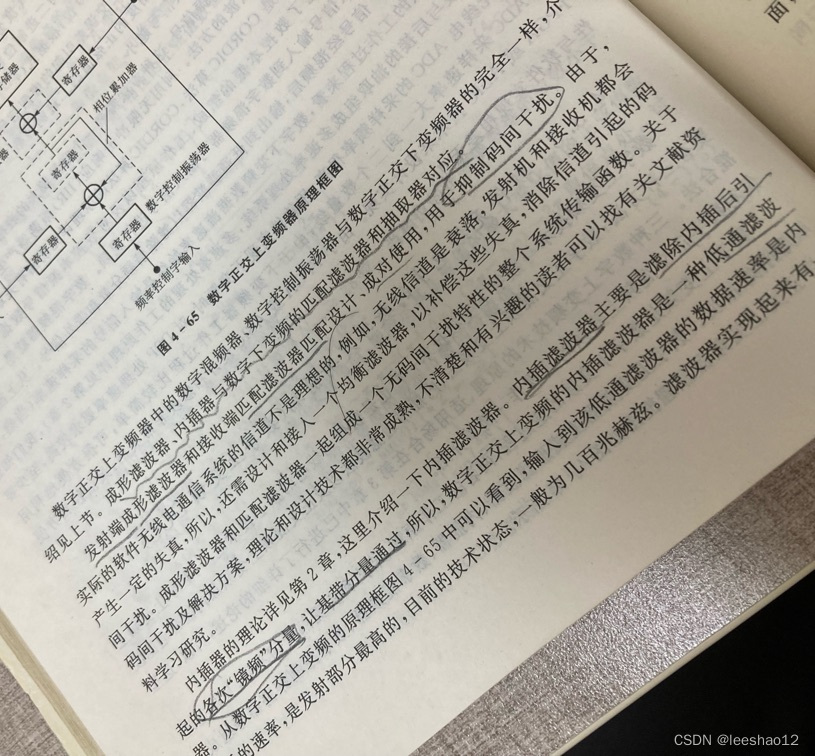 储器
寄存器
器
寄存器
相位累加器
寄存器
寄存器
数字控制振荡器
频率控制字输入
图 4-65 数字正交上变频器原理框图
数字正交上变频器中的数字混频器、数字控制振荡器与数字正交下变频器的完全一样，介
绍见上节。成形滤波器、内插器与数字下变频的匹配滤波器和抽取器对应。
发射端成形滤波器和接收端匹配滤波器匹配设计、成对使用，用于抑制码间干扰。由于，
实际的软件无线电通信系统的信道不是理想的，例如，无线信道是衰落，发射机和接收机都会
产生一定的失真，所以，还需设计和接入一个均衡滤波器，以补偿这些失真，消除信道引起的码
间干扰。成形滤波器和匹配滤波器一起组成一个无码间干扰特性的整个系统传输函数。关于
码间干扰及解决方案，理论和设计技术都非常成熟，不清楚和有兴趣的读者可以找有关文献资
料学习研究。
内插器的理论详见第2章，这里介绍一下内插滤波器。内插滤波器主要是滤除内插后引
起的各次“镜频”分量，让基带分量通过，所以，数字正交上变频的内插滤波器是一种低通滤波
器。从数字正交上变频的原理框图4-65中可以看到，输入到该低通滤波器的数据速率是内
的速率，是发射部分最高的，目前的技术状态，一般为几百兆赫兹。滤波器实现起来有
面，
CSDN @leeshao12